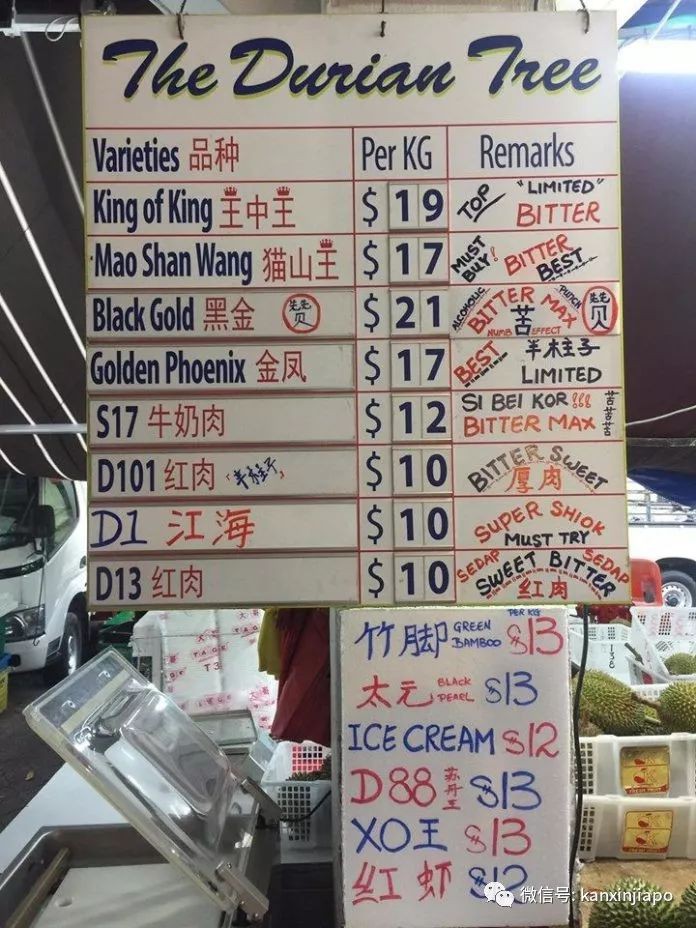 The Durian Tree
Varieties 品种 Per KG Remarks
King of King 王中王 $ 19 TOP "LIMITED" BITTER
Mao Shan Wang 猫山王 $ 17 MUST BUY! BITTER BEST
Black Gold 黑金 $ 21 ALCOHOLIC BITTER MAX PUNCH NUMB 苦 EFFECT
Golden Phoenix 金凤 $ 17 BEST 羊柱子 LIMITED
S17 牛奶肉 $ 12 SI BEI KOR!!! BITTER MAX 苦苦苦
D101 红肉 "羊柱子" $ 10 BITTER SWEET 厚肉
D1 江海 $ 10 SUPER SHIOK MUST TRY
D13 红肉 $ 10 SEDAP SWEET BITTER SEDAP 红肉
PER KG
竹脚 GREEN BAMBOO $13
太元 BLACK PEARL $13
ICE CREAM $12
D88 苏丹王 $13
XO王 $13
红虾 $12
微信号: kanxinjiapo